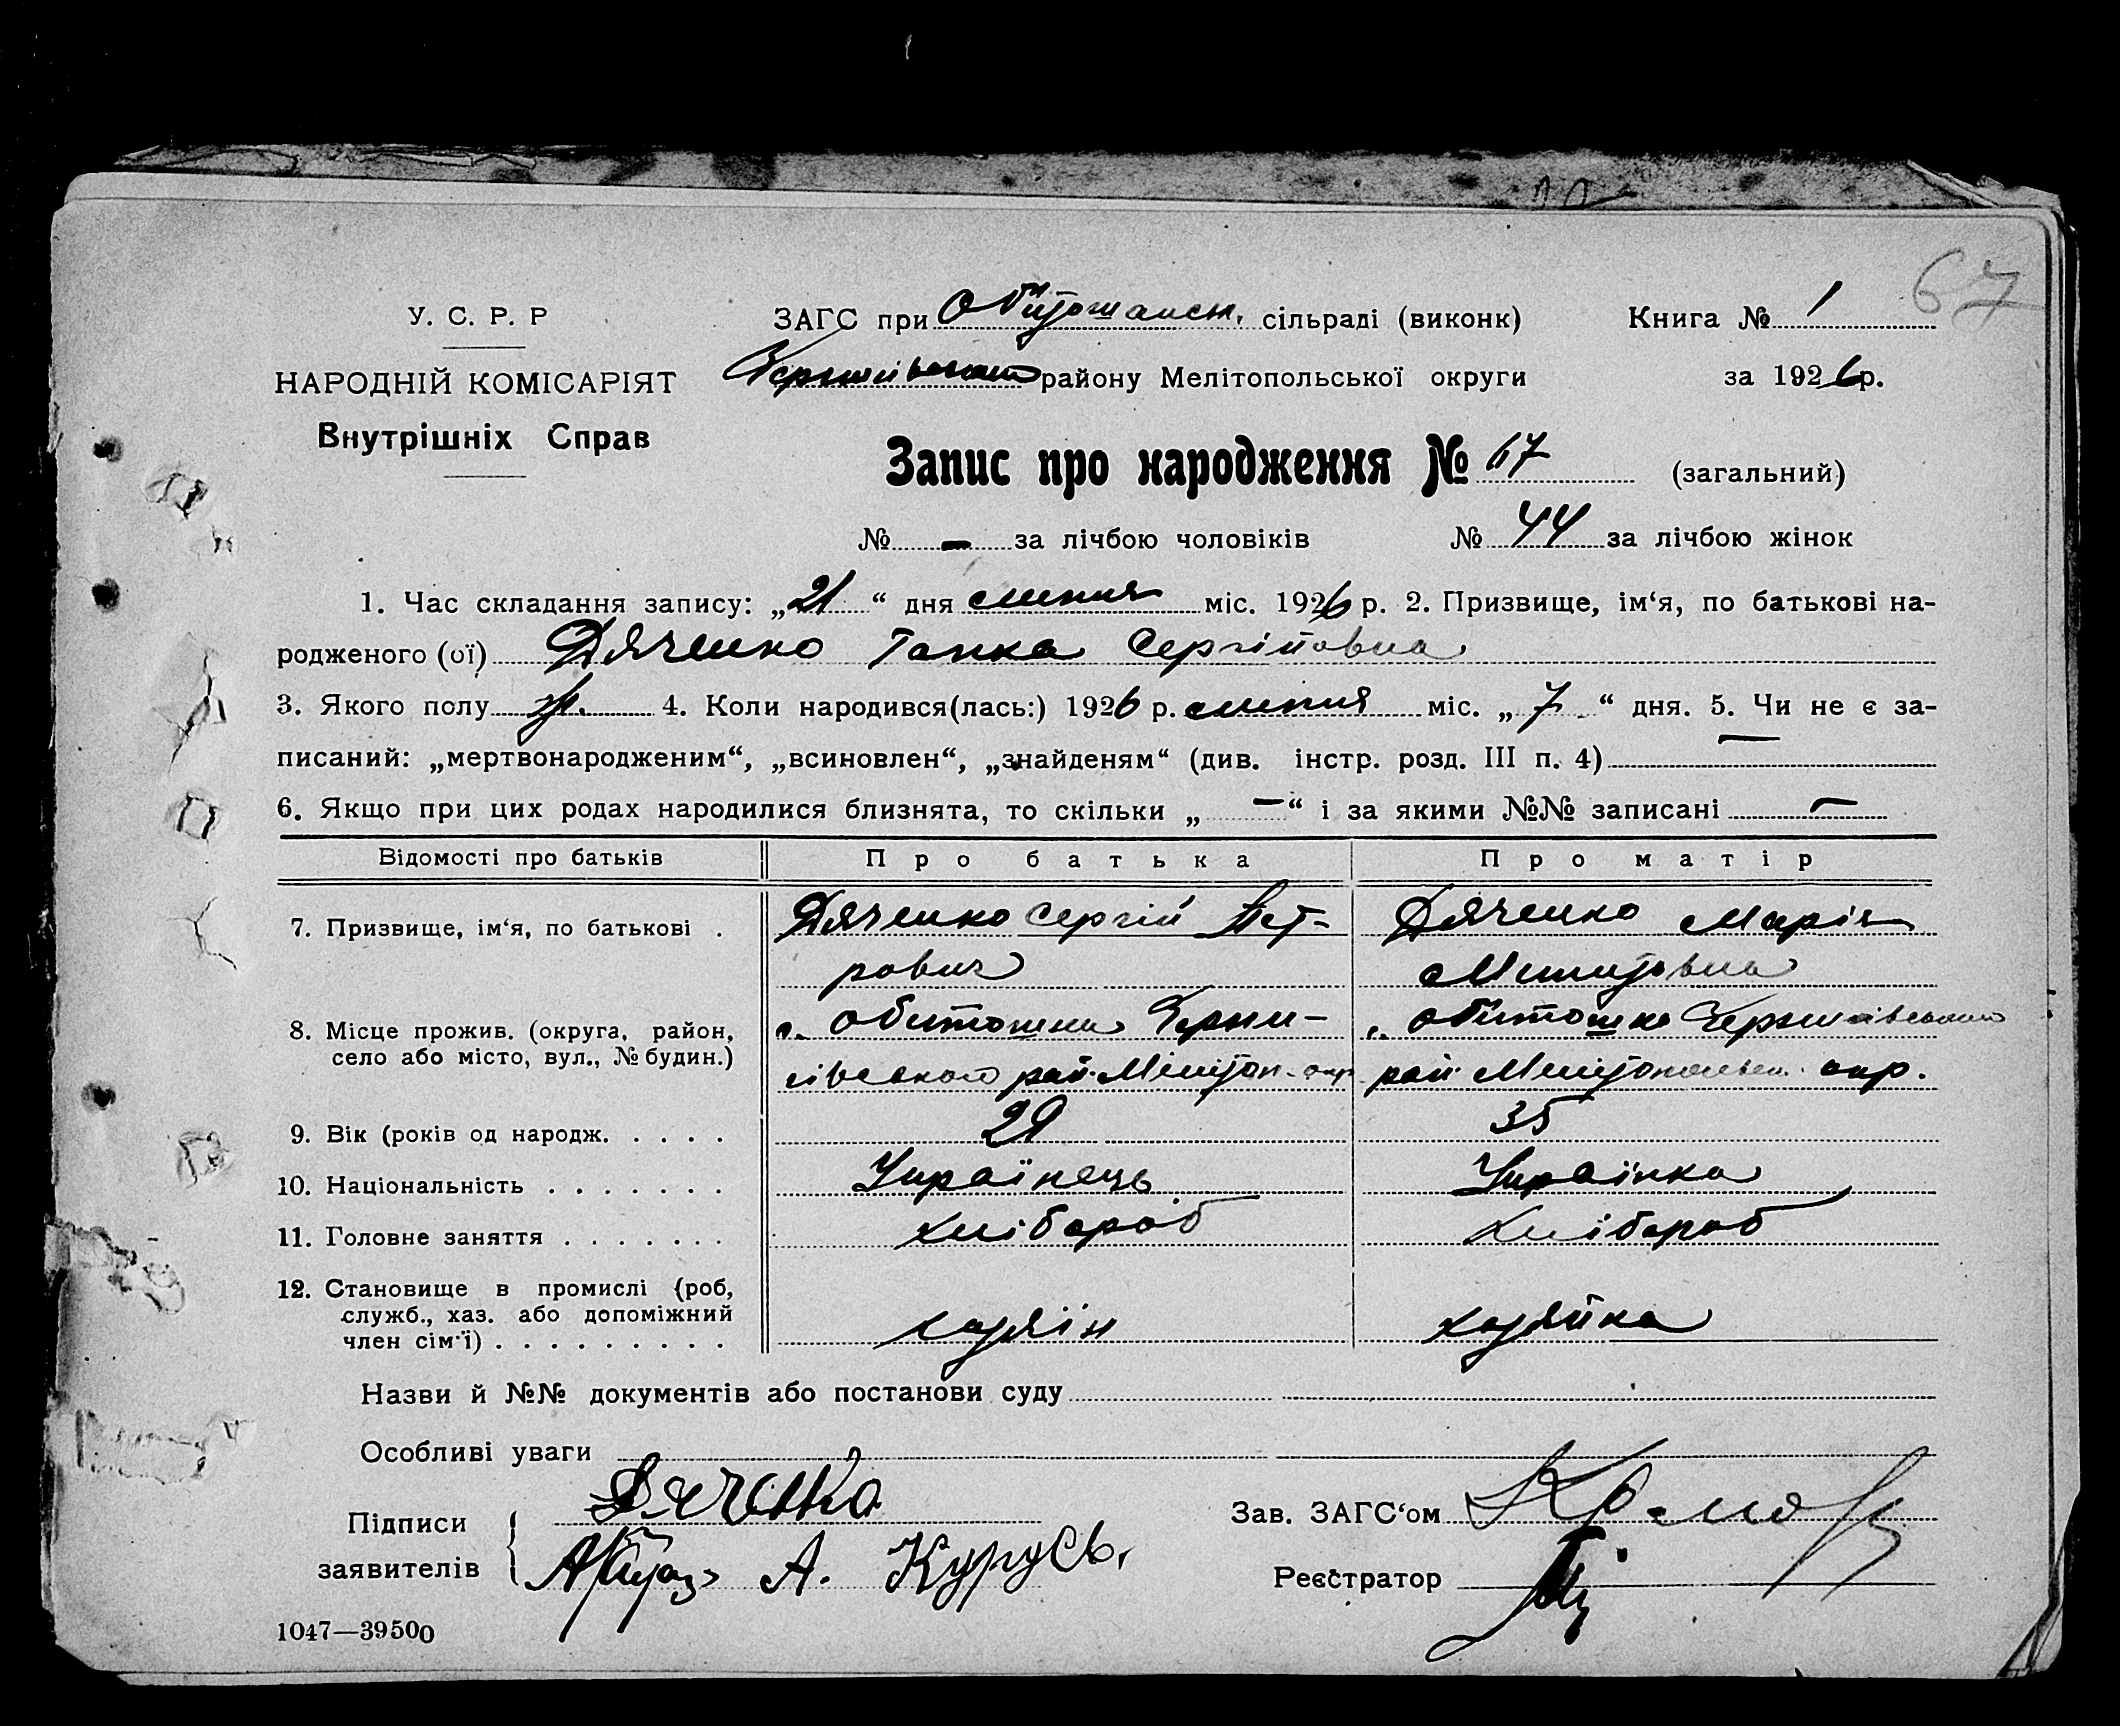 67
У. С. Р. Р
ЗАГС при Обиточанськ. сільраді (виконк) Книга № 1
НАРОДНІЙ КОМІСАРІЯТ
району Мелітопольської округи за 1926 р.
Внутрішніх Справ
Запис про народження № 67 (загальний)
№ – за лічбою чоловіків № 44 за лічбою жінок
1. Час складання запису: „21“ дня липня міс. 1926 р. 2. Призвище, ім‘я, по батькові на-
родженого (ої) Дяченко Ганка Сергіївна
3. Якого полу ж. 4. Коли народився(лась:) 1926 р. липня міс. „7“ дня. 5. Чи не є за-
писаний: „мертвонародженим“, „всиновлен“, „знайденям“ (див. інстр. розд. III п. 4) —
6. Якщо при цих родах народилися близнята, то скільки „—“ і за якими №№ записані —
Відомості про батьків Про батька Про матір
7. Призвище, ім‘я, по батькові . Дяченко Сергій Пет- Дяченко Марія
рович
8. Місце прожив. (округа, район, с. Обиточна с. Обиточна
село або місто, вул., № будин.) рай. рай. окр.
9. Вік (років од народж. . . . . 29 35
10. Національність . . . . . . . Українець Українка
11. Головне заняття . . . . . . . хлібороб хлібороб
12. Становище в промислі (роб,
служб., хаз. або допоміжний
член сім‘ї) . . . . . . . . . хазяїн хазяйка
Назви й №№ документів або постанови суду
Особливі уваги
Дяченко
Підписи
Зав. ЗАГС‘ом
заявителів А. Курусь.
Реєстратор
1047—39500